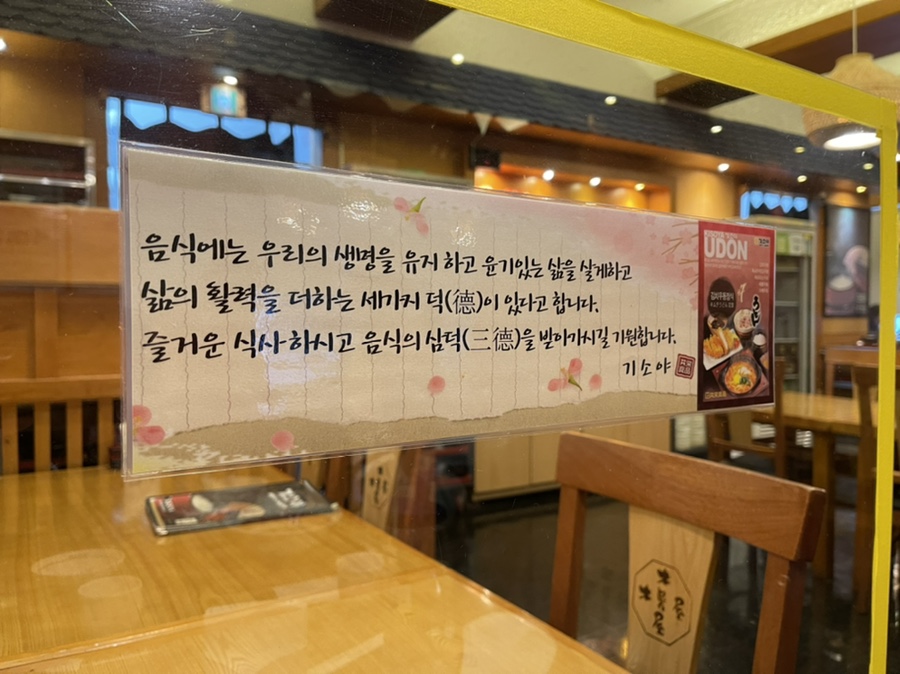 음식에는 우리의 생명을 유지하고 윤기있는 삶을 살게하고
삶의 활력을 더하는 세가지 덕(德)이 있다고 합니다.
즐거운 식사하시고 음식의 삼덕(三德)을 받아가시길 기원합니다.
기소야
UDON